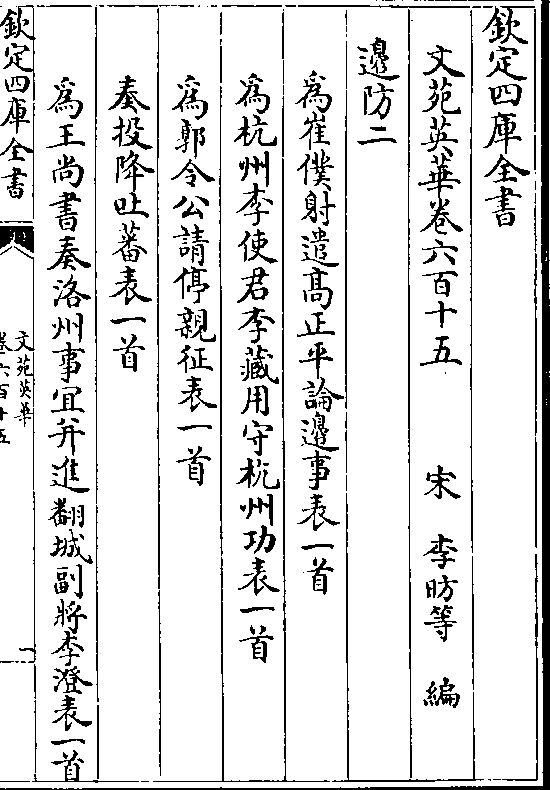 欽定四庫全書
文苑英華卷六百十五 宋 李昉等 編
邊防二
為崔僕射遣高正平論邊事表一首
為杭州李使君李藏用守杭州功表一首
為郭令公請停親征表一首
奏投降吐蕃表一首
為王尚書奏洛州事宜并進翻城副將李澄表一首
欽定四庫全書
文苑英華
卷六百十五
一